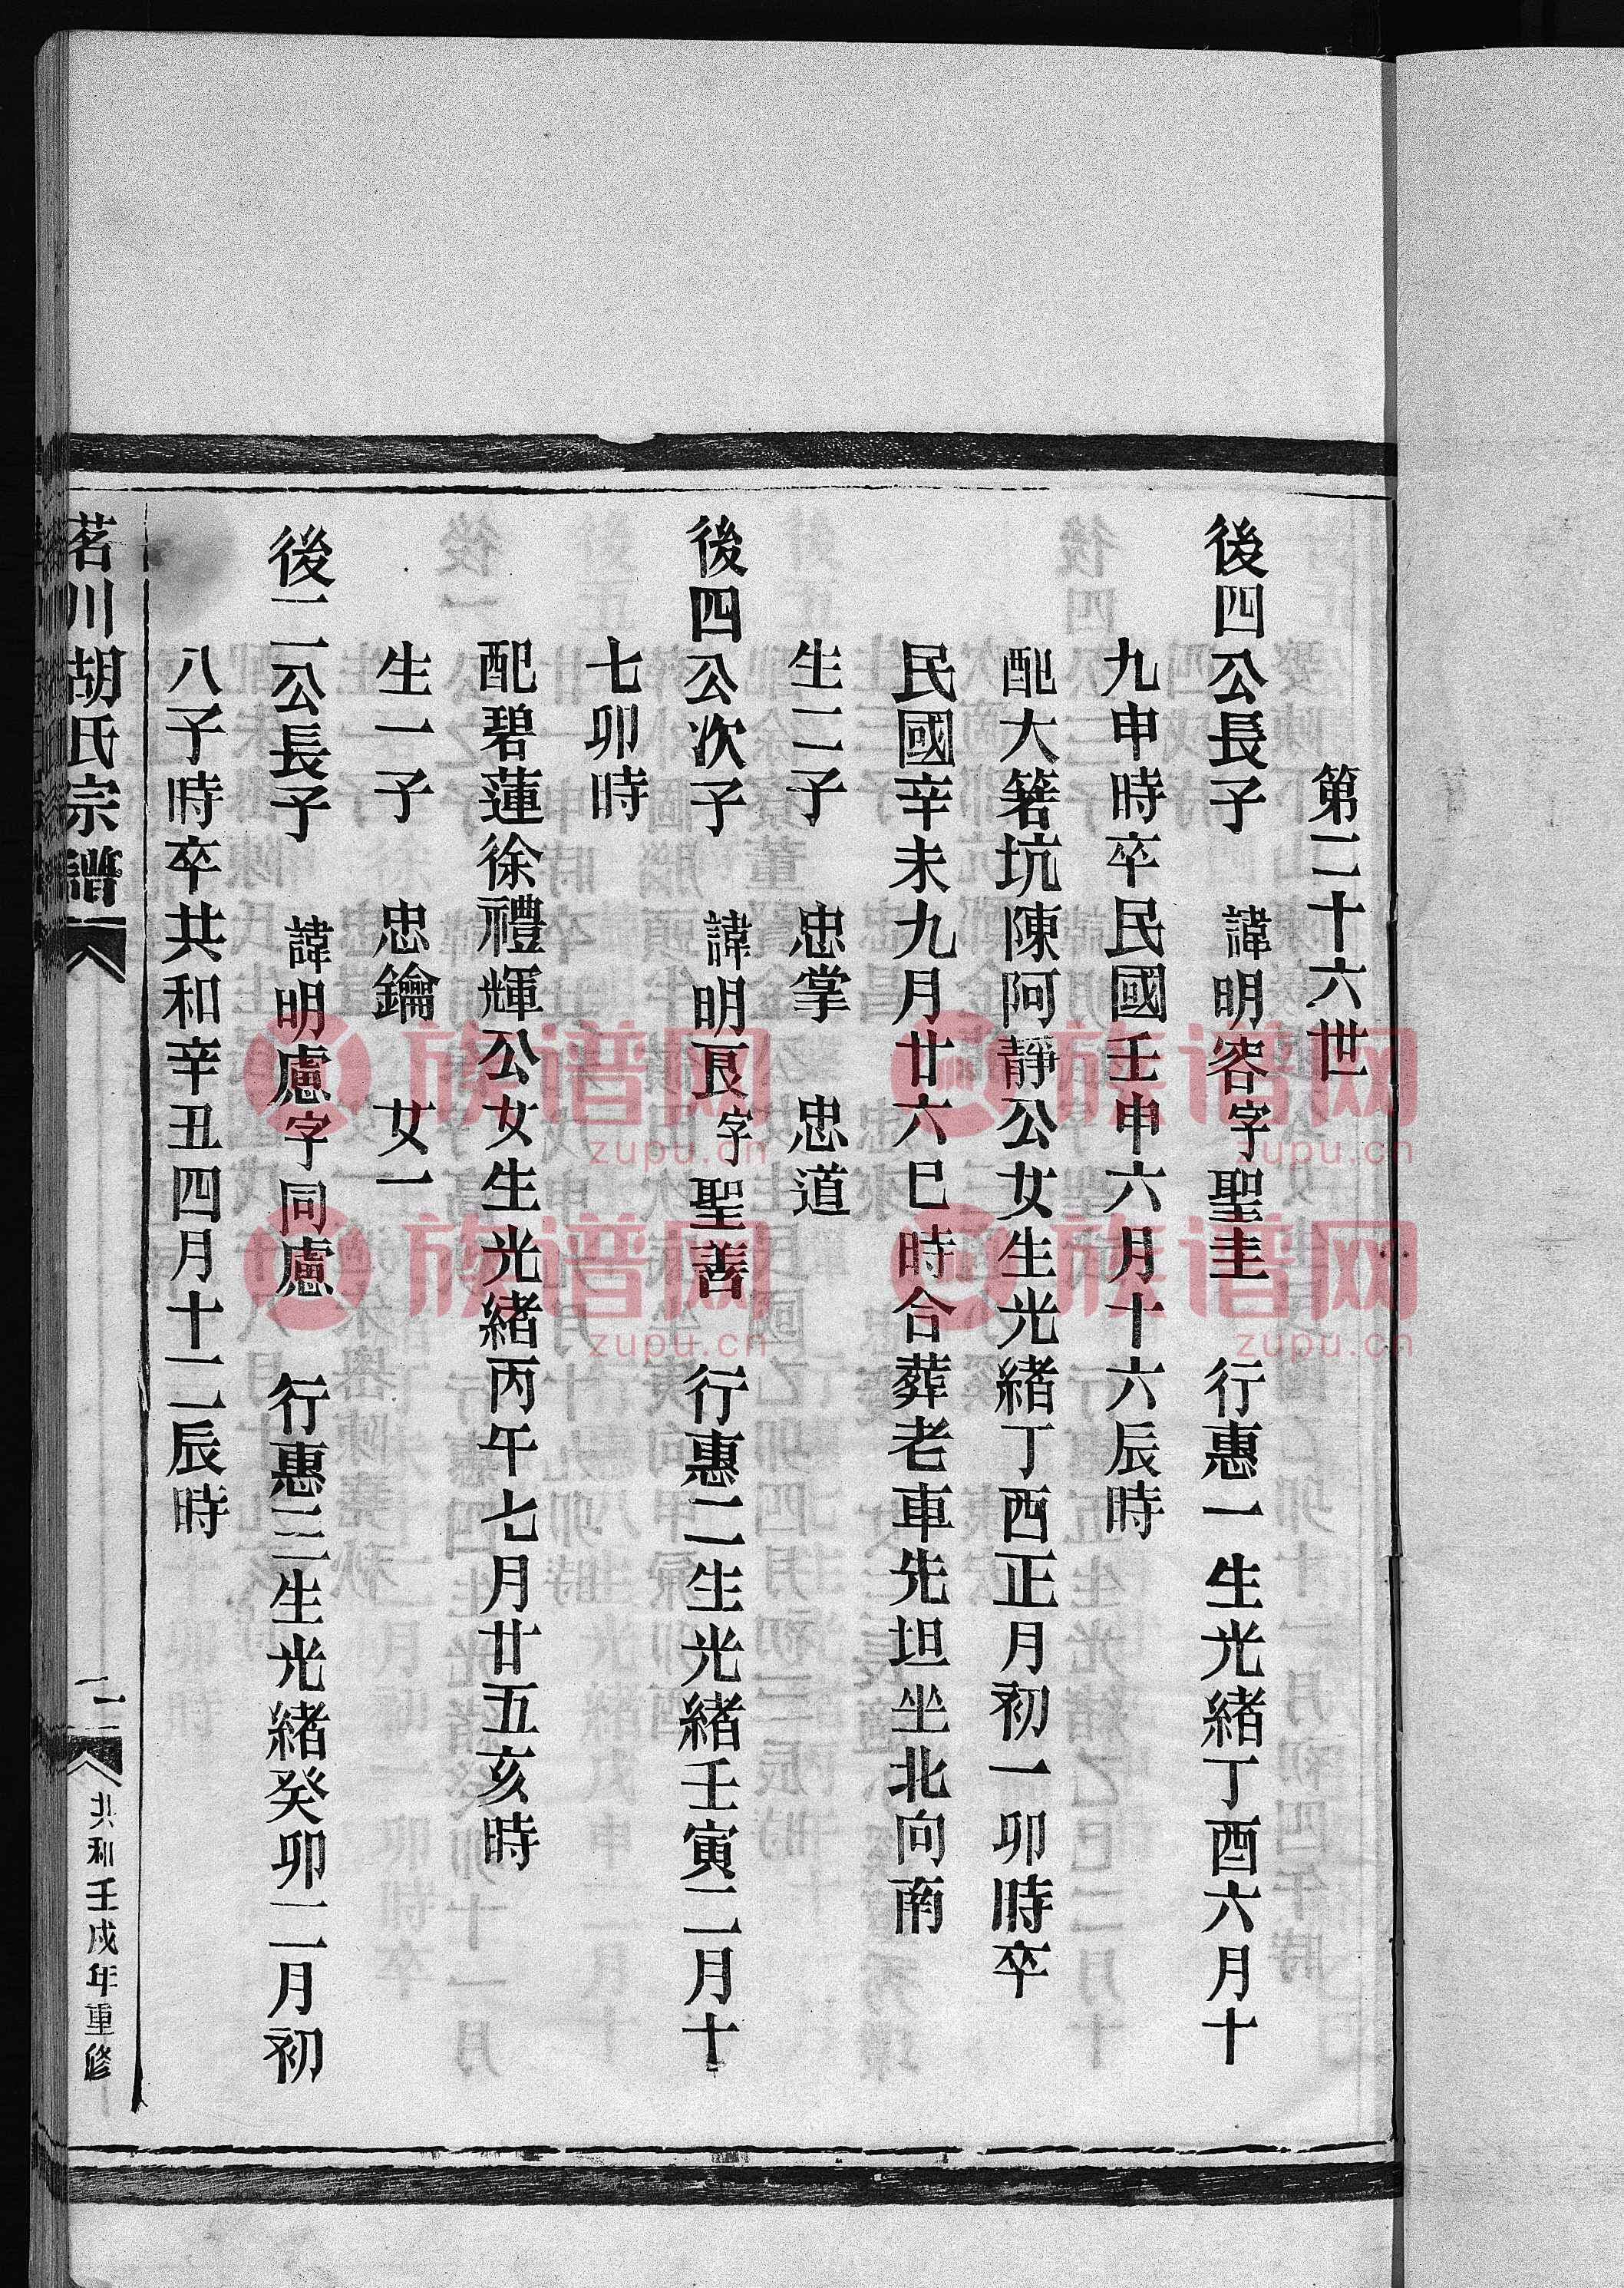 第二十六世
後四公長子　諱明容字聖圭　行惠一生光緒丁酉六月十
九申時卒民國壬申六月十六辰時
配大箬坑陳阿靜公女生光緒丁酉正月初一卯時卒
民國辛未九月廿六巳時合葬老車先坦坐北向南
生二子　忠掌　忠道
後四公次子　諱明良字聖善　行惠二生光緒壬寅二月十
七卯時
配碧蓮徐禮輝公女生光緒丙午七月廿五亥時
生一子　忠鑰　女一
後二公長子　諱明慮字同慮　行惠三生光緒癸卯二月初
八子時卒共和辛丑四月十二辰時
茗川胡氏宗譜
二
共和壬戌年重修
族谱网
zupu.cn
族谱网
zupu.cn
族谱网
zupu.cn
族谱网
zupu.cn